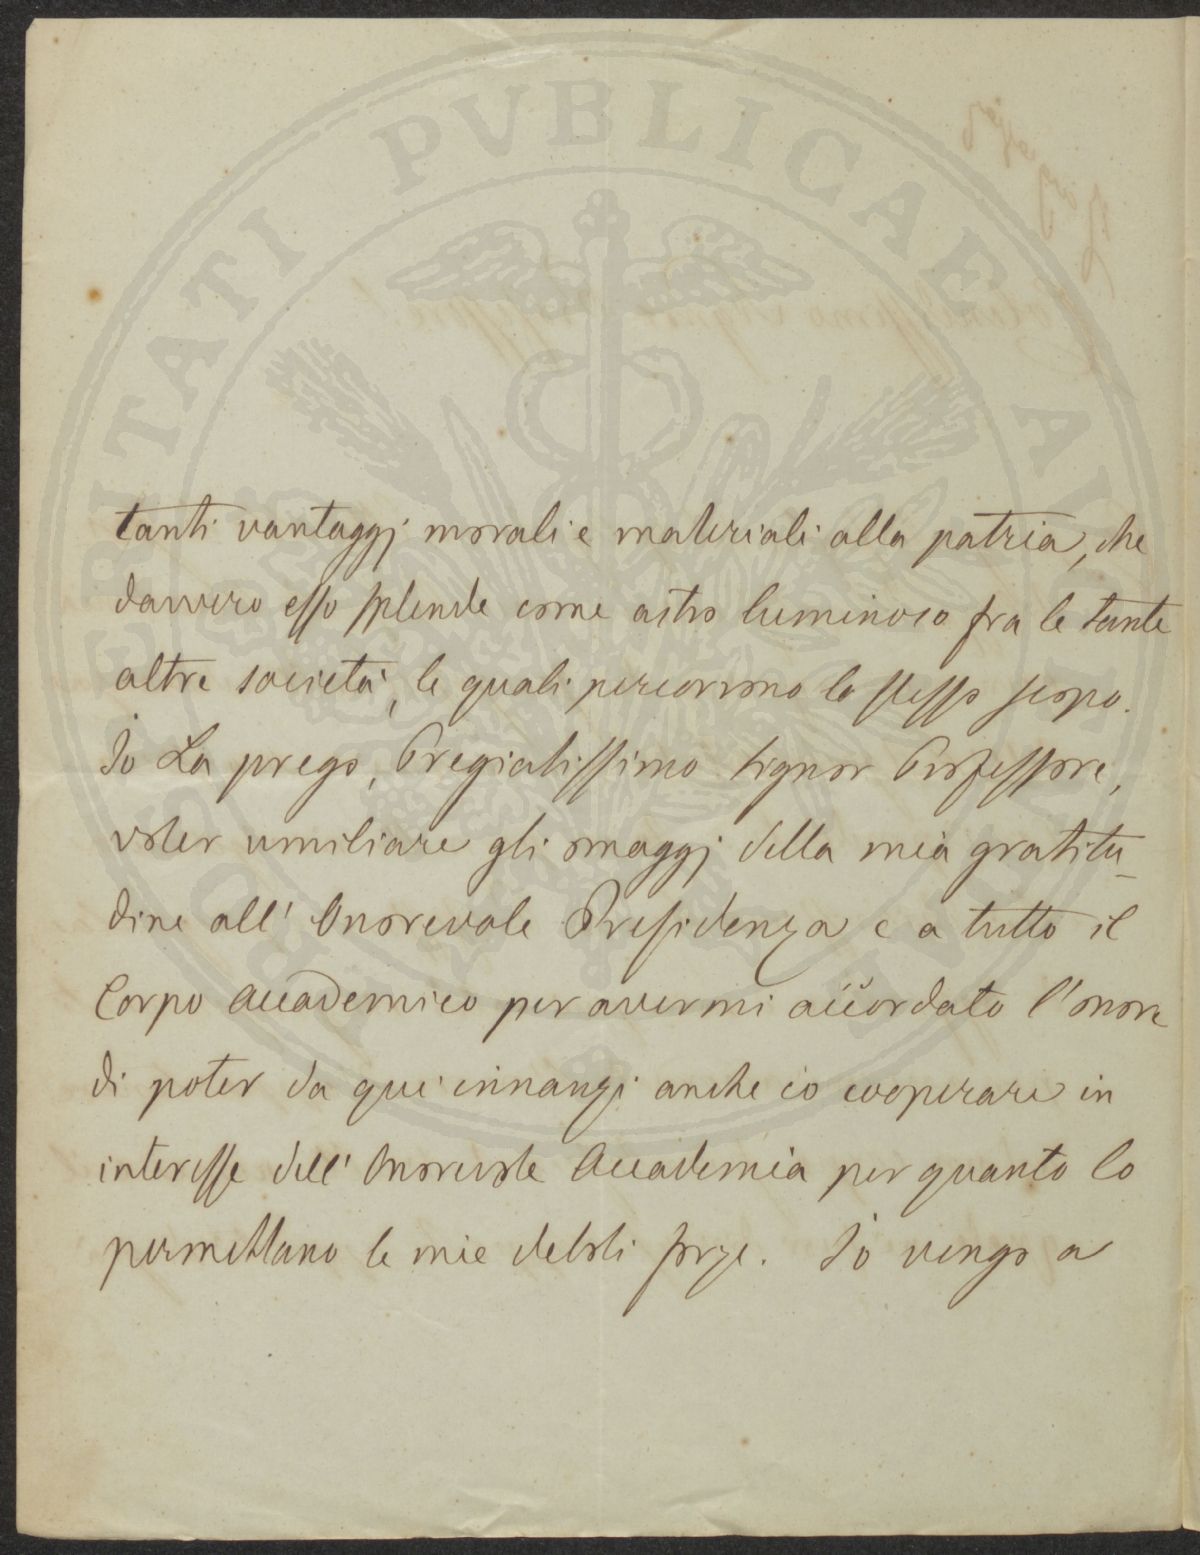 PROSPERITATI PVBLICAE AVGENDAE
tanti vantaggj morali e materiali alla patria, che
davvero esso splende come astro luminoso fra le tante
altre società, le quali percorrono lo stesso scopo.
Io La prego, Pregiatissimo Signor Professore,
voler umiliare gli omaggj della mia gratitu-
dine all' Onorevole Presidenza e a tutto il
Corpo Accademico per avermi accordato l'onore
di poter da qui innanzi anche io cooperare in
interesse dell' Onorevole Accademia per quanto lo
permettano le mie deboli forze. Io vengo a